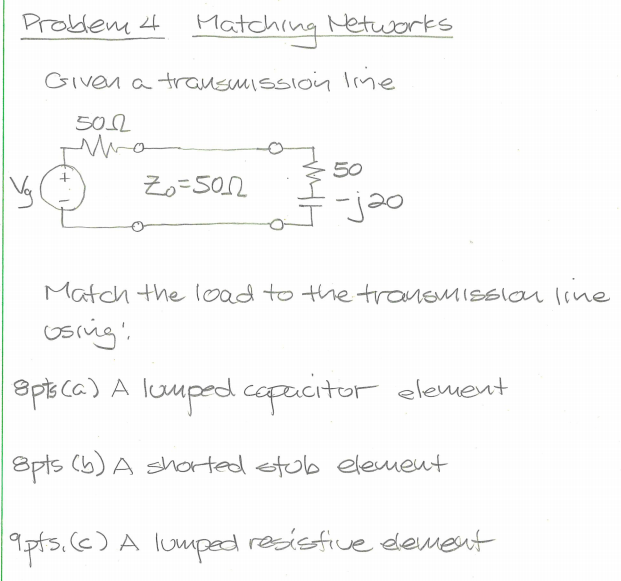 Problem 4 Matching Networks
Given a transmission line
50Ω
Vg
+
-
Z₀=50Ω
50
-j20
Match the load to the transmission line
using:
8pts (a) A lumped capacitor element
8pts (b) A shorted stub element
9pts. (c) A lumped resistive element